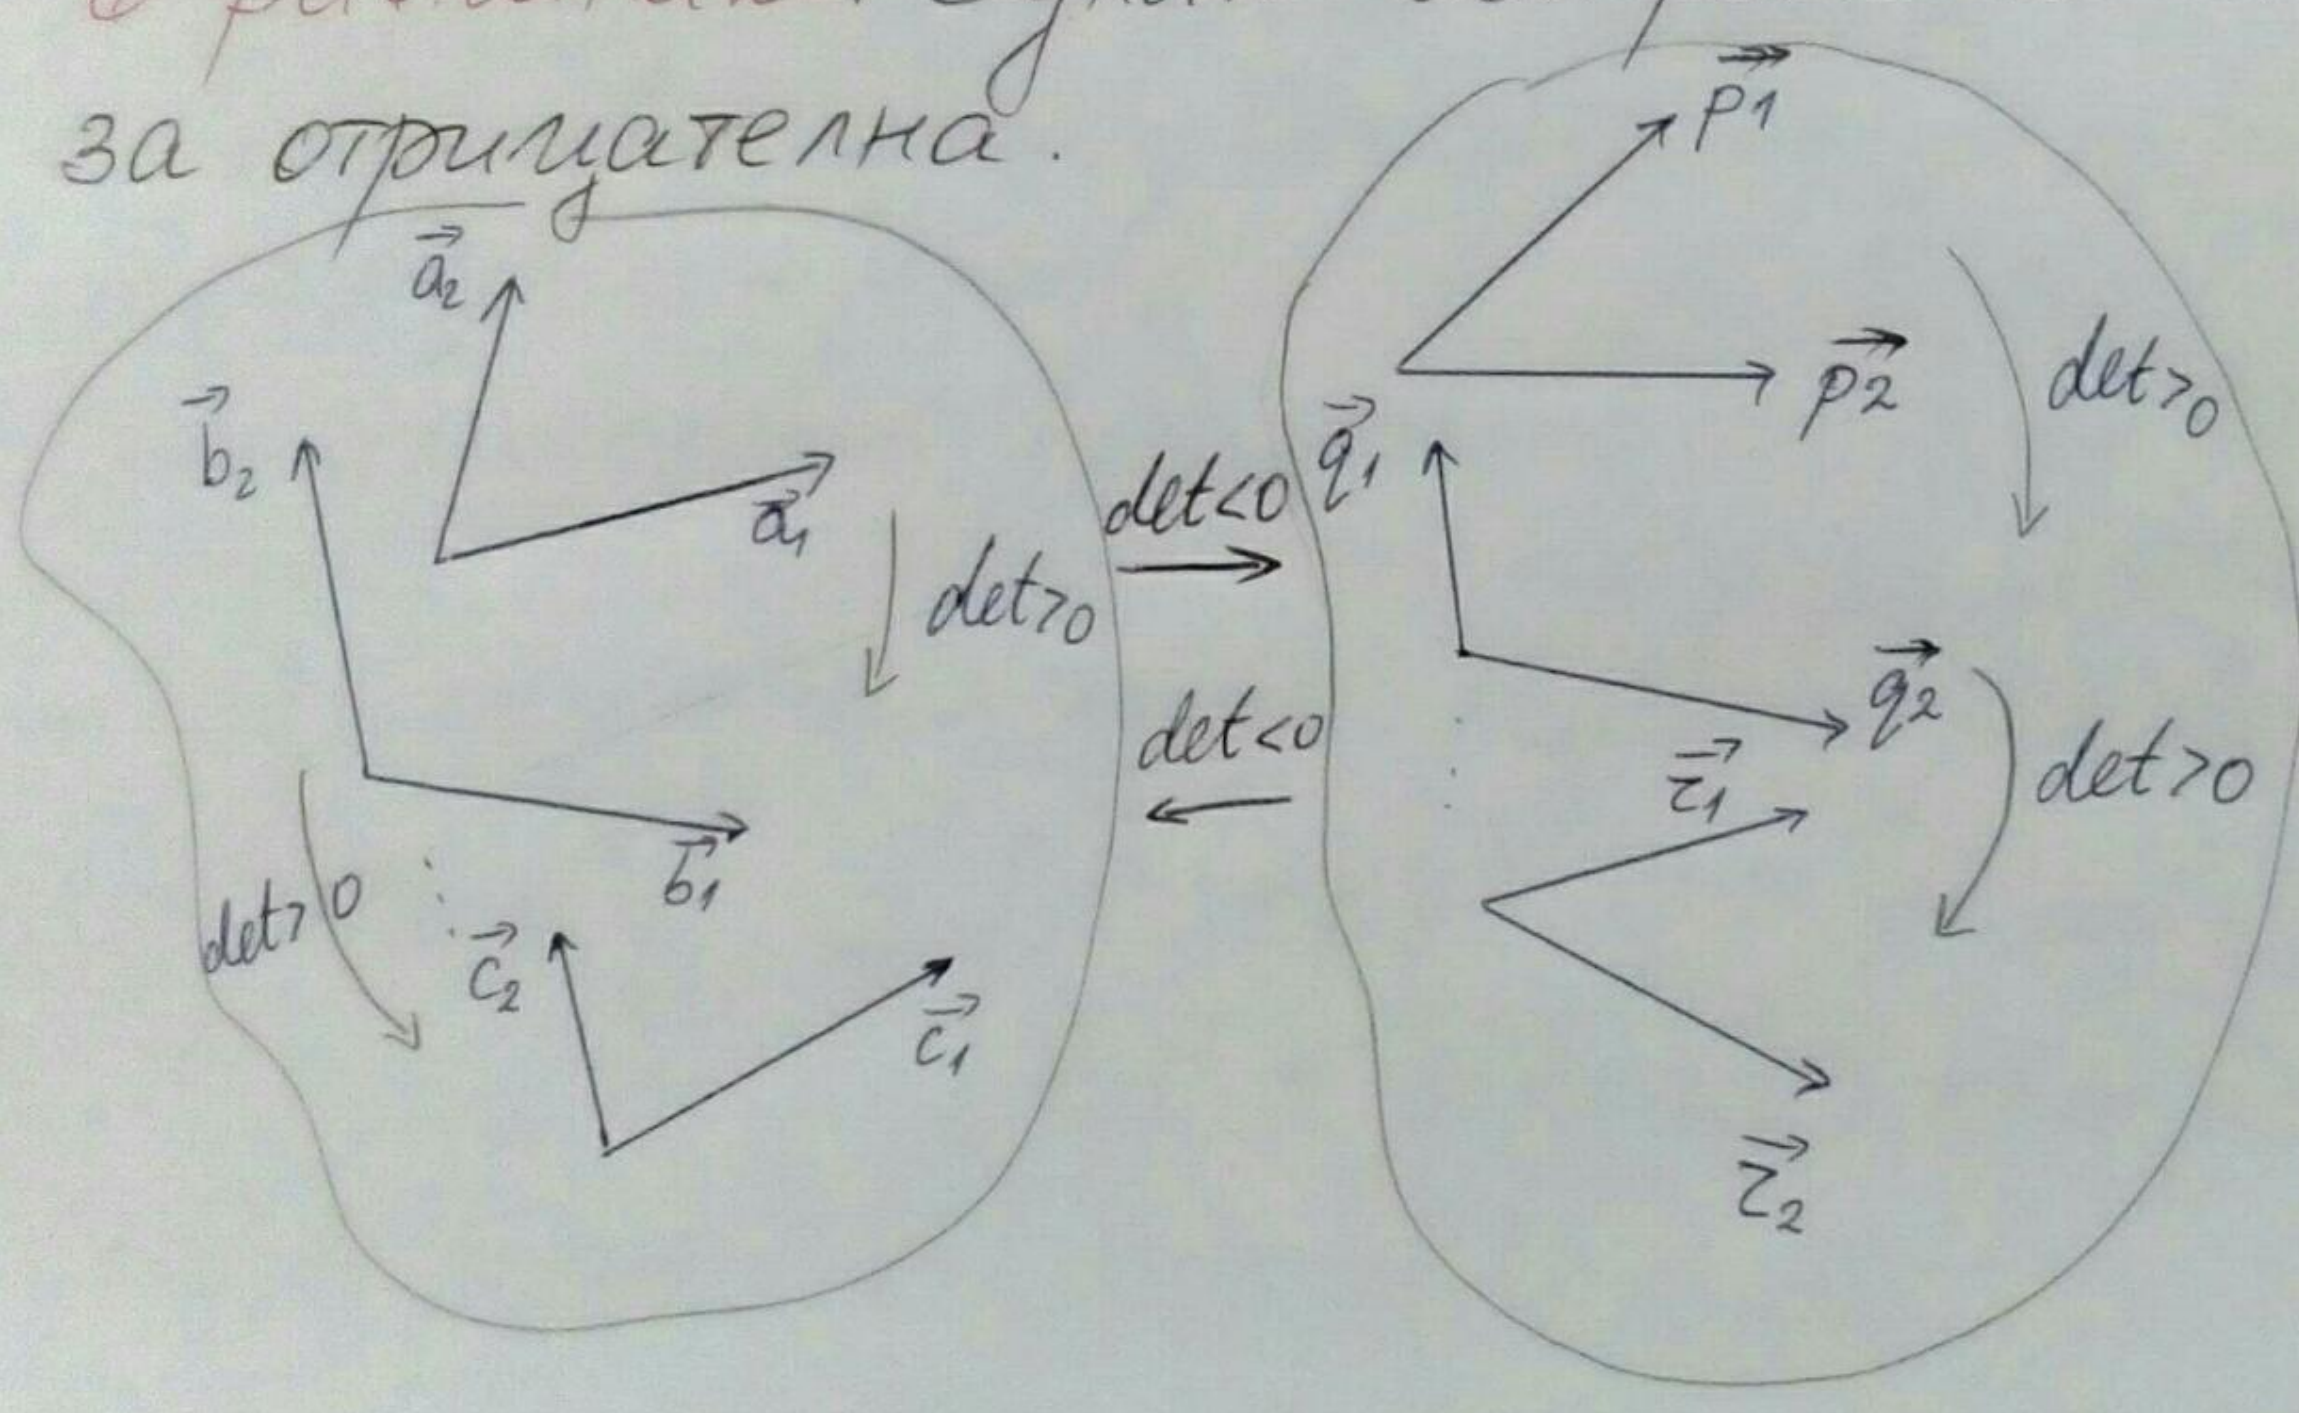 за отрицателна.
a⃗₂
a⃗₁
b⃗₂
b⃗₁
det>0
det>0
c⃗₂
c⃗₁
det<0
det<0
p⃗1
p⃗2
det>0
q⃗₁
q⃗₂
det>0
r⃗₁
r⃗₂